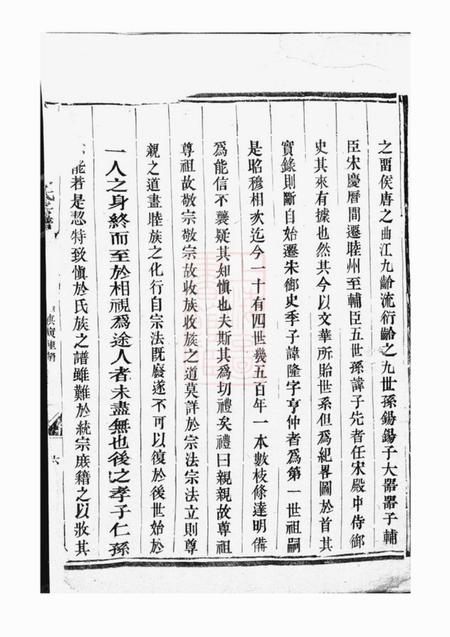 之留侯唐之曲江九齡流衍齡之九世孫錫錫子大器器子輔
臣宋慶曆間遷睦州至輔臣五世孫諱子先者任宋殿中侍御
史其來有據也然其今以文華所貽世系但爲紀畧圖於首其
實錄則斷自始遷朱御史季子諱隆字亨仲者爲第一世祖嗣
是昭穆相次迄今一十有四世幾五百年一本數枝條達明備
爲能信不襲疑其知愼也夫斯其爲切禮矣禮曰親親故尊祖
尊祖故敬宗敬宗故收族收族之道莫詳於宗法宗法立則尊
親之道盡睦族之化行自宗法旣廢遂不可以復於後世始於
一人之身終而至於相視爲途人者未盡無也後之孝子仁孫
能若是恝特致愼於氏族之譜雖難於統宗族籍之以收其
六